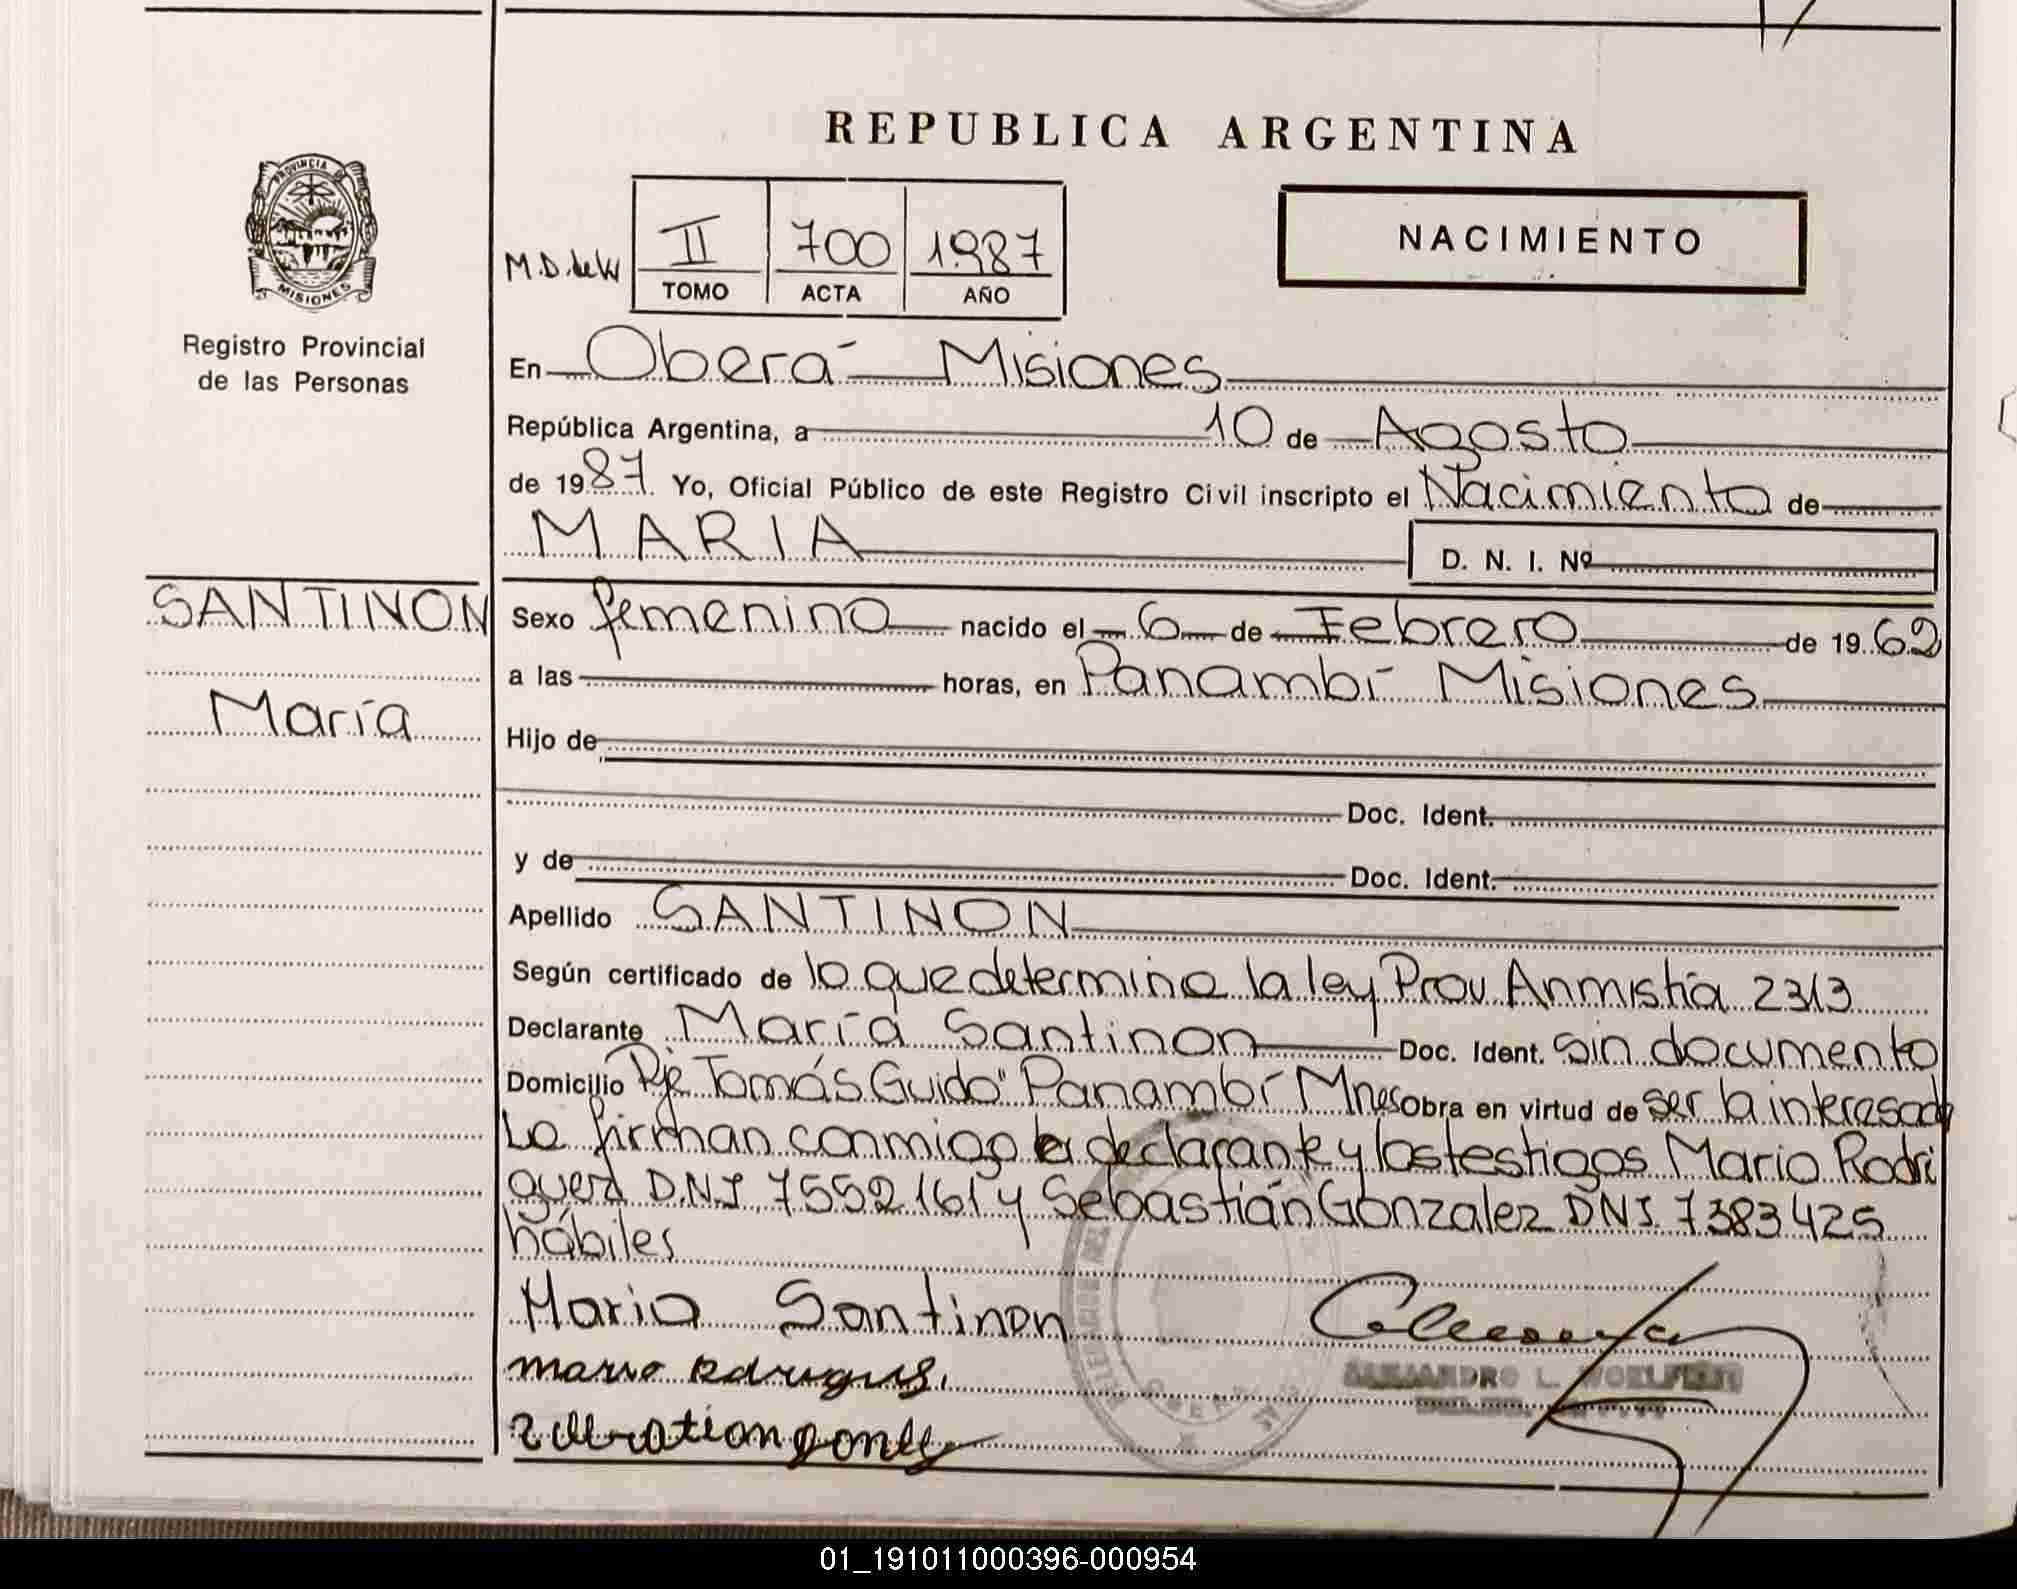 REPUBLICA ARGENTINA
PROVINCIA DE
MISIONES
Registro Provincial
de las Personas
M.D. de W
II 700 1987
TOMO ACTA AÑO
NACIMIENTO
En Oberá Misiones
República Argentina, a 10 de Agosto
de 1987. Yo, Oficial Público de este Registro Civil inscripto el Nacimiento de
MARIA D. N. I. Nº
SANTINON
María
Sexo femenino nacido el 6 de Febrero de 1962
a las horas, en Panambí Misiones
Hijo de
Doc. Ident.
y de Doc. Ident.
Apellido SANTINON
Según certificado de lo que determina la ley Prov. Anmistía 2313
Declarante María Santinon Doc. Ident. sin documento
Domicilio Pje "Tomás Guido" Panambí Mnes Obra en virtud de ser la interesada
La firman conmigo la declarante y los testigos Mario Rodri
guez D.N.I. 7552161 y Sebastián Gonzalez DNI. 7383425
hábiles
Maria Santinon
ALEJANDRO L.
01_191011000396-000954